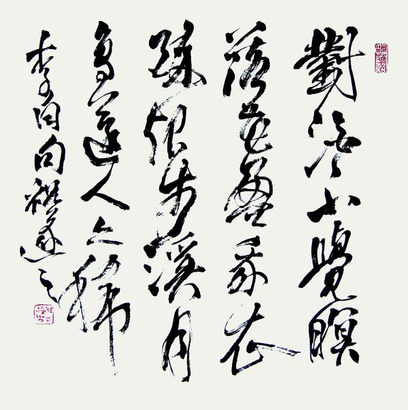 對酒不覺暝
落花盈我衣
醉起步溪月
鳥還人亦稀
李白句